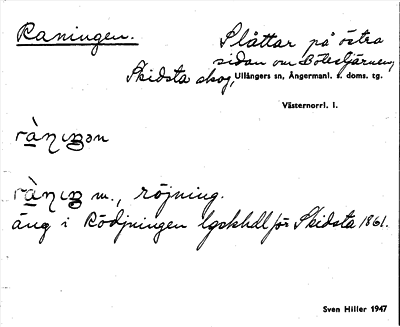 Raningen.
Slåttar på östra
sidan om Bölestjärnen,
Skidsta skog, Ullångers sn, Ångermanl. s. doms. tg.
Västernorrl. l.
rànıŋən
rànıŋ m., röjning.
äng i Rödjningen lgskhdl för Skidsta 1861.
Sven Hiller 1947